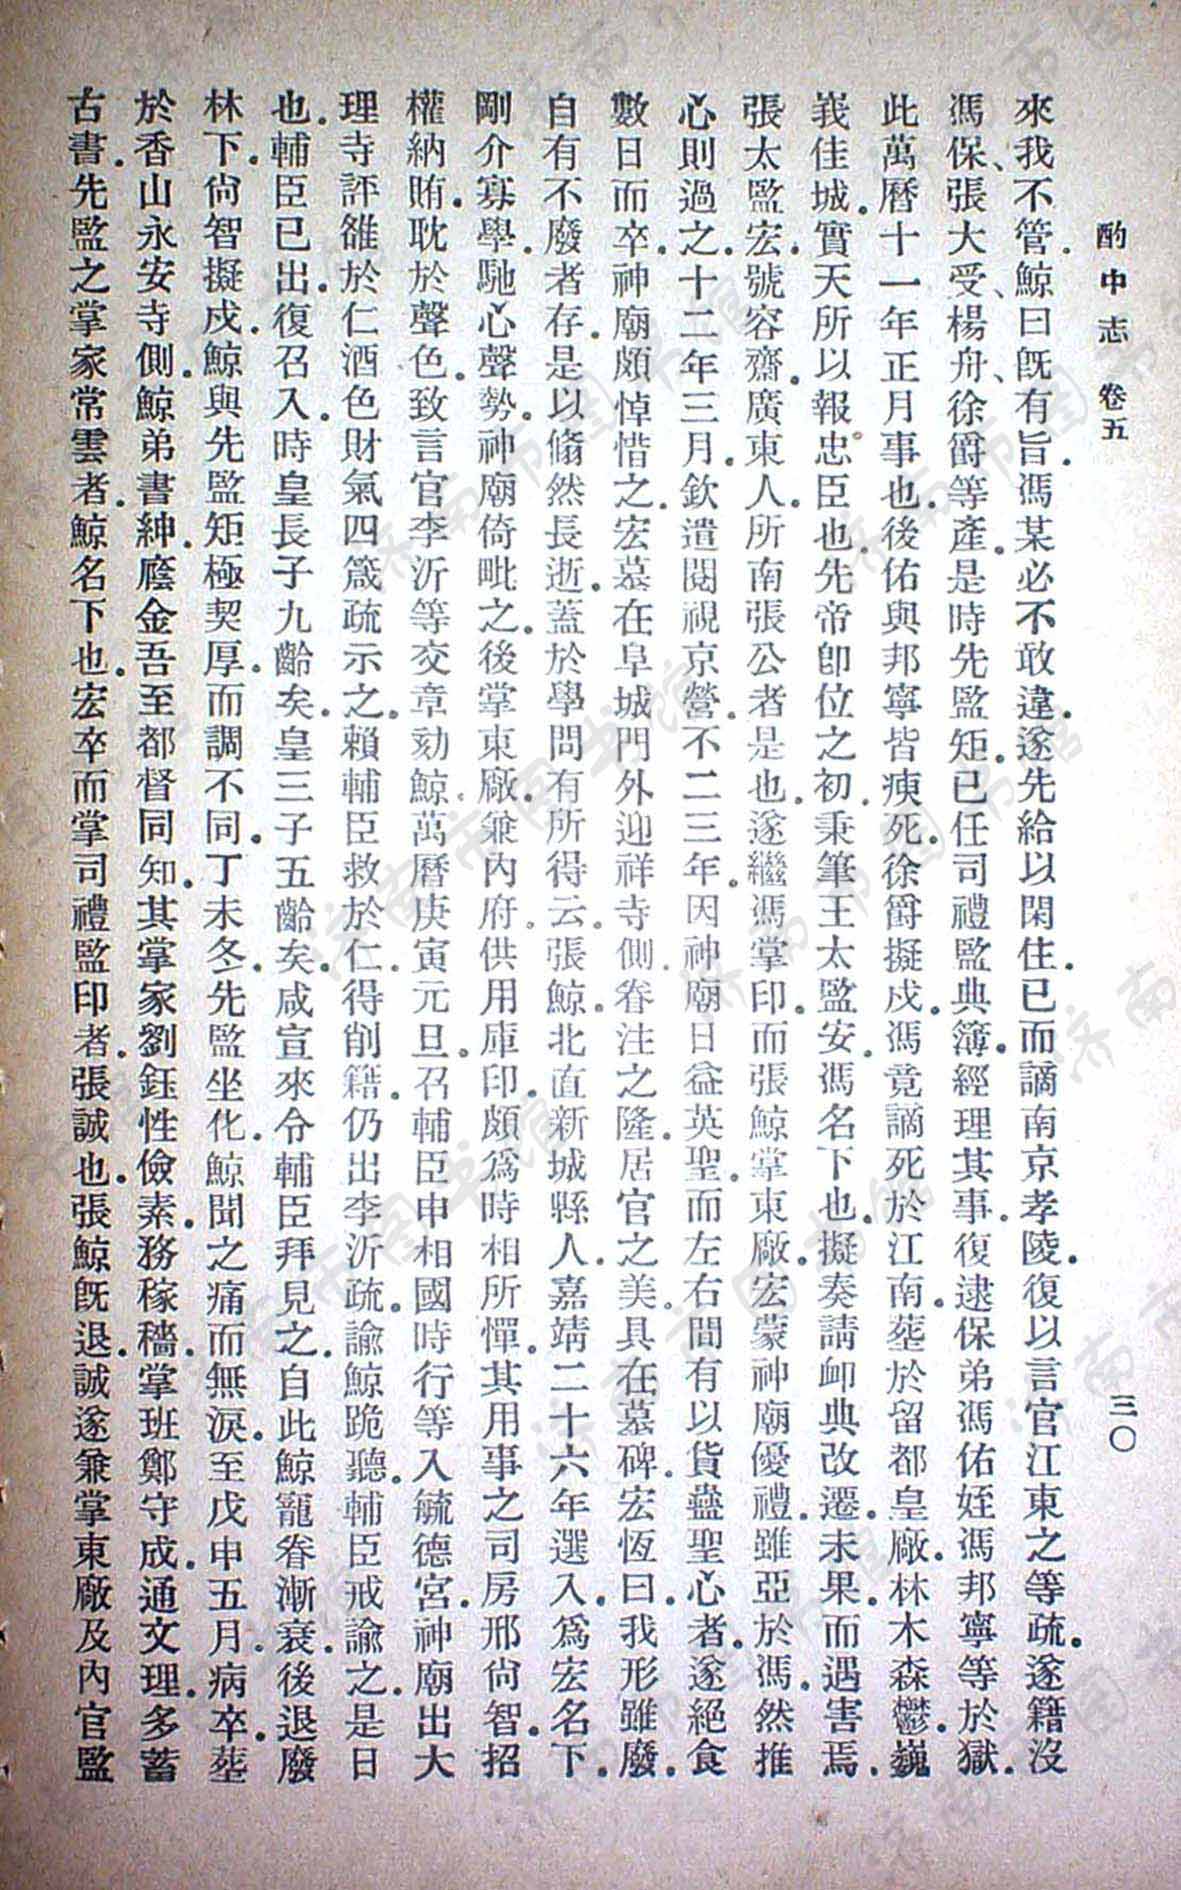 酌中志 卷五 三〇
來我不管。鯨曰既有旨。馮某必不敢違。遂先給以閑住。已而謫南京孝陵。復以言官江東之等疏。遂籍沒
馮保、張大受、楊舟、徐爵等產。是時先監矩。已任司禮監典簿。經理其事。復逮保弟馮佑姪馮邦寧等於獄。
此萬曆十一年正月事也。後佑與邦寧皆瘐死。徐爵擬戍。馮竟謫死於江南。塟於留都皇廠。林木森鬱。巍
峩佳城。實天所以報忠臣也。先帝卽位之初。秉筆王太監安。馮名下也。擬奏請卹典改遷。未果。而遇害焉。
張太監宏。號容齋。廣東人。所南張公者是也。遂繼馮掌印。而張鯨掌東廠。宏蒙神廟優禮。雖亞於馮。然推
心則過之。十二年三月。欽遣閱視京營。不二三年。因神廟日益英聖。而左右間有以貨蠱聖心者。遂絕食
數日而卒。神廟頗悼惜之。宏墓在阜城門外迎祥寺側。眷注之隆。居官之美。具在墓碑。宏恆曰。我形雖廢。
自有不廢者存。是以翛然長逝。蓋於學問有所得云。張鯨。北直新城縣人。嘉靖二十六年選入。爲宏名下。
剛介寡學。馳心聲勢。神廟倚毗之。後掌東廠。兼內府供用庫印。頗爲時相所憚。其用事之司房邢尙智。招
權納賄。耽於聲色。致言官李沂等交章劾鯨。萬曆庚寅元旦。召輔臣申相國時行等入毓德宮。神廟出大
理寺評雒於仁酒色財氣四箴疏示之。賴輔臣救於仁。得削籍。仍出李沂疏。諭鯨跪聽。輔臣戒諭之。是日
也。輔臣已出。復召入。時皇長子九齡矣。皇三子五齡矣。咸宣來令輔臣拜見之。自此鯨寵眷漸衰。後退廢
林下。尙智擬戍。鯨與先監矩極契厚。而調不同。丁未冬。先監坐化。鯨聞之痛而無淚。至戊申五月。病卒。塟
於香山永安寺側。鯨弟書紳。廕金吾至都督同知。其掌家劉鈺。性儉素。務稼穡。掌班鄭守成。通文理。多蓄
古書。先監之掌家常雲者。鯨名下也。宏卒而掌司禮監印者。張誠也。張鯨既退。誠遂兼掌東廠及內官監